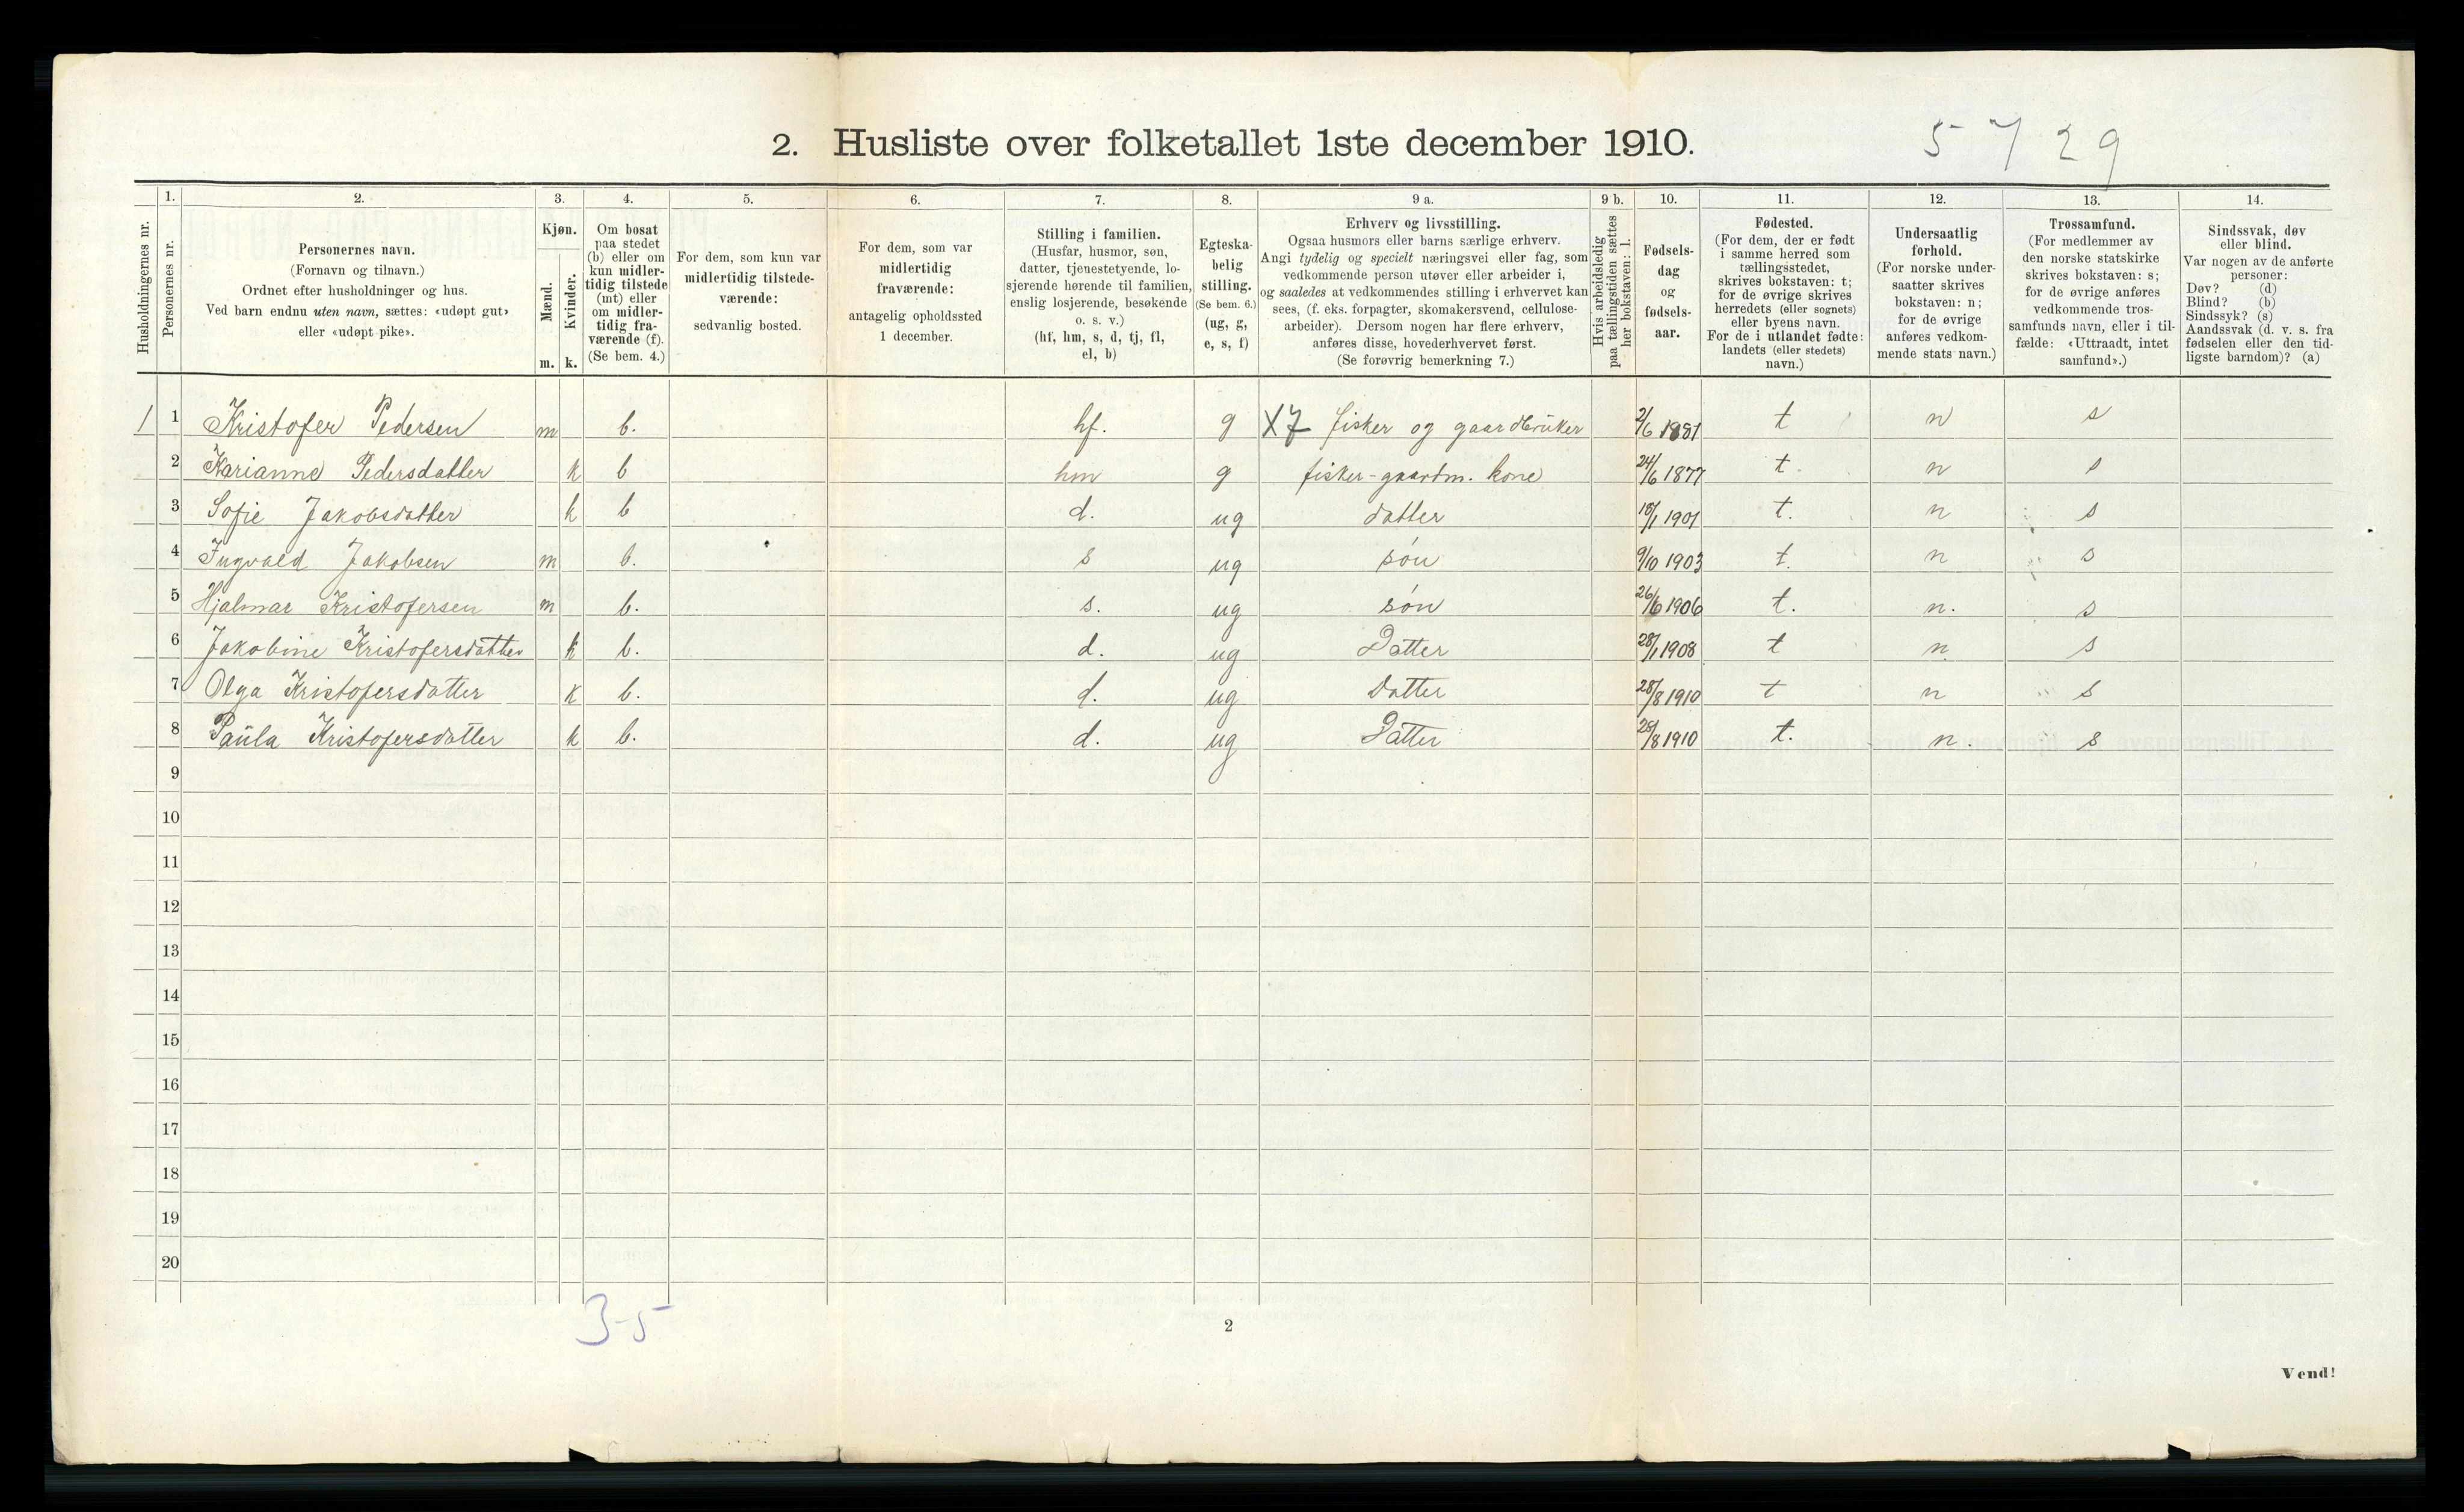 2. Husliste over folketallet 1ste december 1910.
5 7 29
Husholdningernes nr.
1.
Personernes nr.
2.
Personernes navn.
(Fornavn og tilnavn.)
Ordnet efter husholdninger og hus.
Ved barn endnu uten navn, sættes: «udøpt gut»
eller «udøpt pike».
3.
Kjøn.
Mænd.
Kvinder.
m. k.
4.
Om bosat
paa stedet
(b) eller om
kun midler-
tidig tilstede
(mt) eller
om midler-
tidig fra-
værende (f).
(Se bem. 4.)
5.
For dem, som kun var
midlertidig tilstede-
værende:
sedvanlig bosted.
6.
For dem, som var
midlertidig
fraværende:
antagelig opholdssted
1 december.
7.
Stilling i familien.
(Husfar, husmor, søn,
datter, tjenestetyende, lo-
sjerende hørende til familien,
enslig losjerende, besøkende
o. s. v.)
(hf, hm, s, d, tj, fl,
el, b)
8.
Egteska-
belig
stilling.
(Se bem. 6.)
(ug, g,
e, s, f)
9 a.
Erhverv og livsstilling.
Ogsaa husmors eller barns særlige erhverv.
Angi tydelig og specielt næringsvei eller fag, som
vedkommende person utøver eller arbeider i,
og saaledes at vedkommendes stilling i erhvervet kan
sees, (f. eks. forpagter, skomakersvend, cellulose-
arbeider). Dersom nogen har flere erhverv,
anføres disse, hovederhvervet først.
(Se forøvrig bemerkning 7.)
9 b.
Hvis arbeidsledig
paa tællingstiden sættes
her bokstaven: l.
10.
Fødsels-
dag
og
fødsels-
aar.
11.
Fødested.
(For dem, der er født
i samme herred som
tællingsstedet,
skrives bokstaven: t;
for de øvrige skrives
herredets (eller sognets)
eller byens navn.
For de i utlandet fødte:
landets (eller stedets)
navn.)
12.
Undersaatlig
forhold.
(For norske under-
saatter skrives
bokstaven: n;
for de øvrige
anføres vedkom-
mende stats navn.)
13.
Trossamfund.
(For medlemmer av
den norske statskirke
skrives bokstaven: s;
for de øvrige anføres
vedkommende tros-
samfunds navn, eller i til-
fælde: «Uttraadt, intet
samfund».)
14.
Sindssvak, døv
eller blind.
Var nogen av de anførte
personer:
Døv? (d)
Blind? (b)
Sindssyk? (s)
Aandssvak (d. v. s. fra
fødselen eller den tid-
ligste barndom)? (a)
1 1 Kristofer Pedersen m b. hf. g X7 fisker og gaardbrüker 2/6 1881 t n s
2 Karianne Pedersdatter k b hm g fisker-gaardm. kone 24/6 1877 t. n s
3 Sofie Jakobsdatter k b d. ug datter 18/1 1901 t. n s
4 Ingvald Jakobsen m b. s ug søn 9/10 1903 t. n s
5 Hjalmar Kristofersen m b. s. ug søn 26/6 1906 t. n. s
6 Jakobine Kristofersdatter k b. d. ug Datter 28/1 1908 t n. s
7 Olga Kristofersdatter k b. d. ug Datter 28/8 1910 t n s
8 Paüla Kristofersdatter k b. d. ug Datter 28/8 1910 t. n. s
9
10
11
12
13
14
15
16
17
18
19
20
3-5
2
Vend!